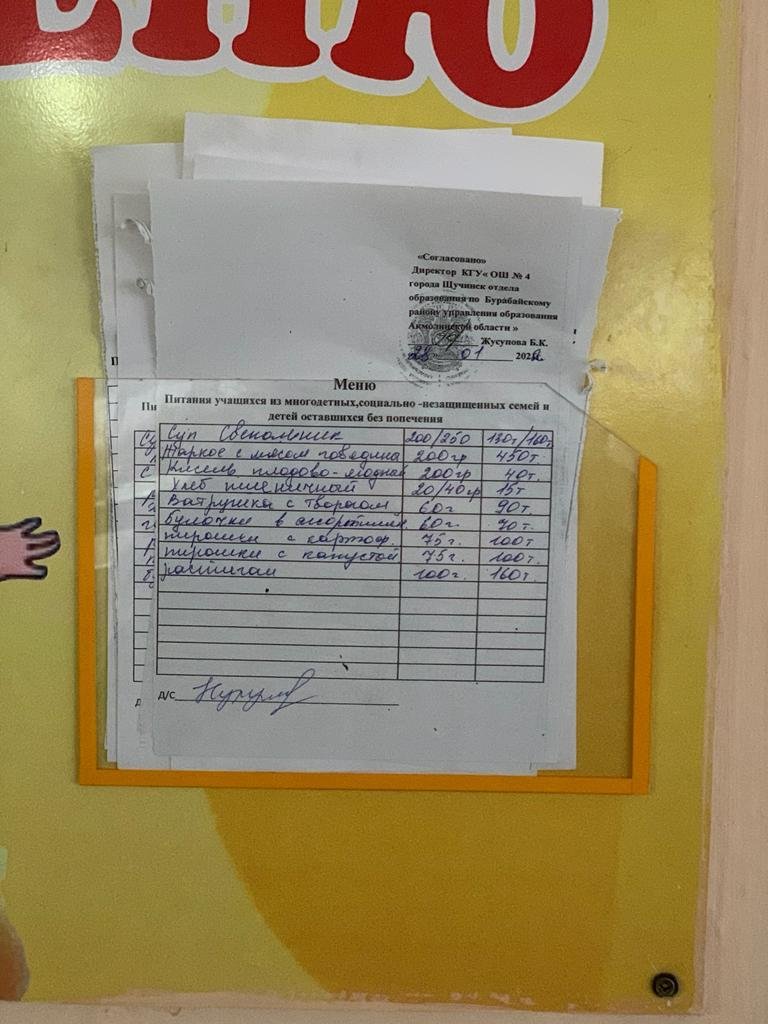 «Согласовано»
Директор КГУ« ОШ № 4
города Щучинск отдела
образования по Бурабайскому
району управления образования
Акмолинской области »
Жусупова Б.К.
28 01 202
Меню
Питания учащихся из многодетных,социально -незащищенных семей и
детей оставшихся без попечения
Суп Свекольник 200/250 130т/160т
Жаркое с мясом говядина 200гр 450т.
Кисель плодово-ягодный 200гр 40т.
Хлеб пшеничный 20/40гр 15т
Ватрушка с творогом 60г. 90т.
булочки в 60г. 70т.
пирожки с картоф. 75г. 100т
пирожки с капустой 75г. 100т.
растегаи 100г. 160т.
д/с